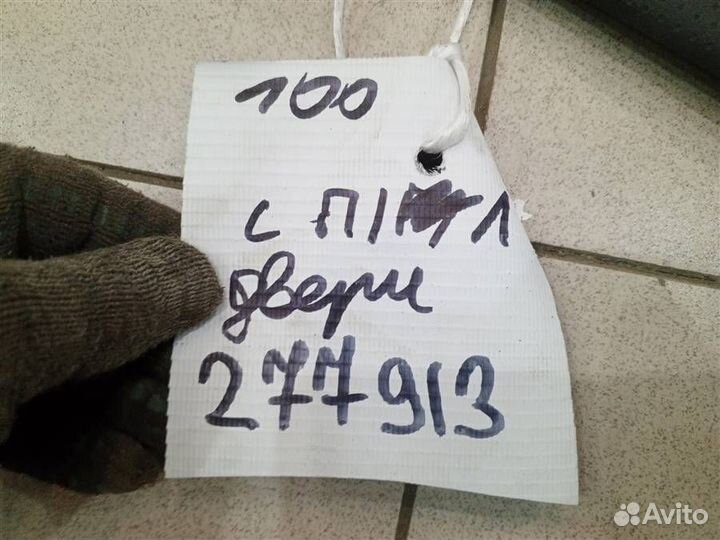 100
с П/Л
двери
277913
Avito